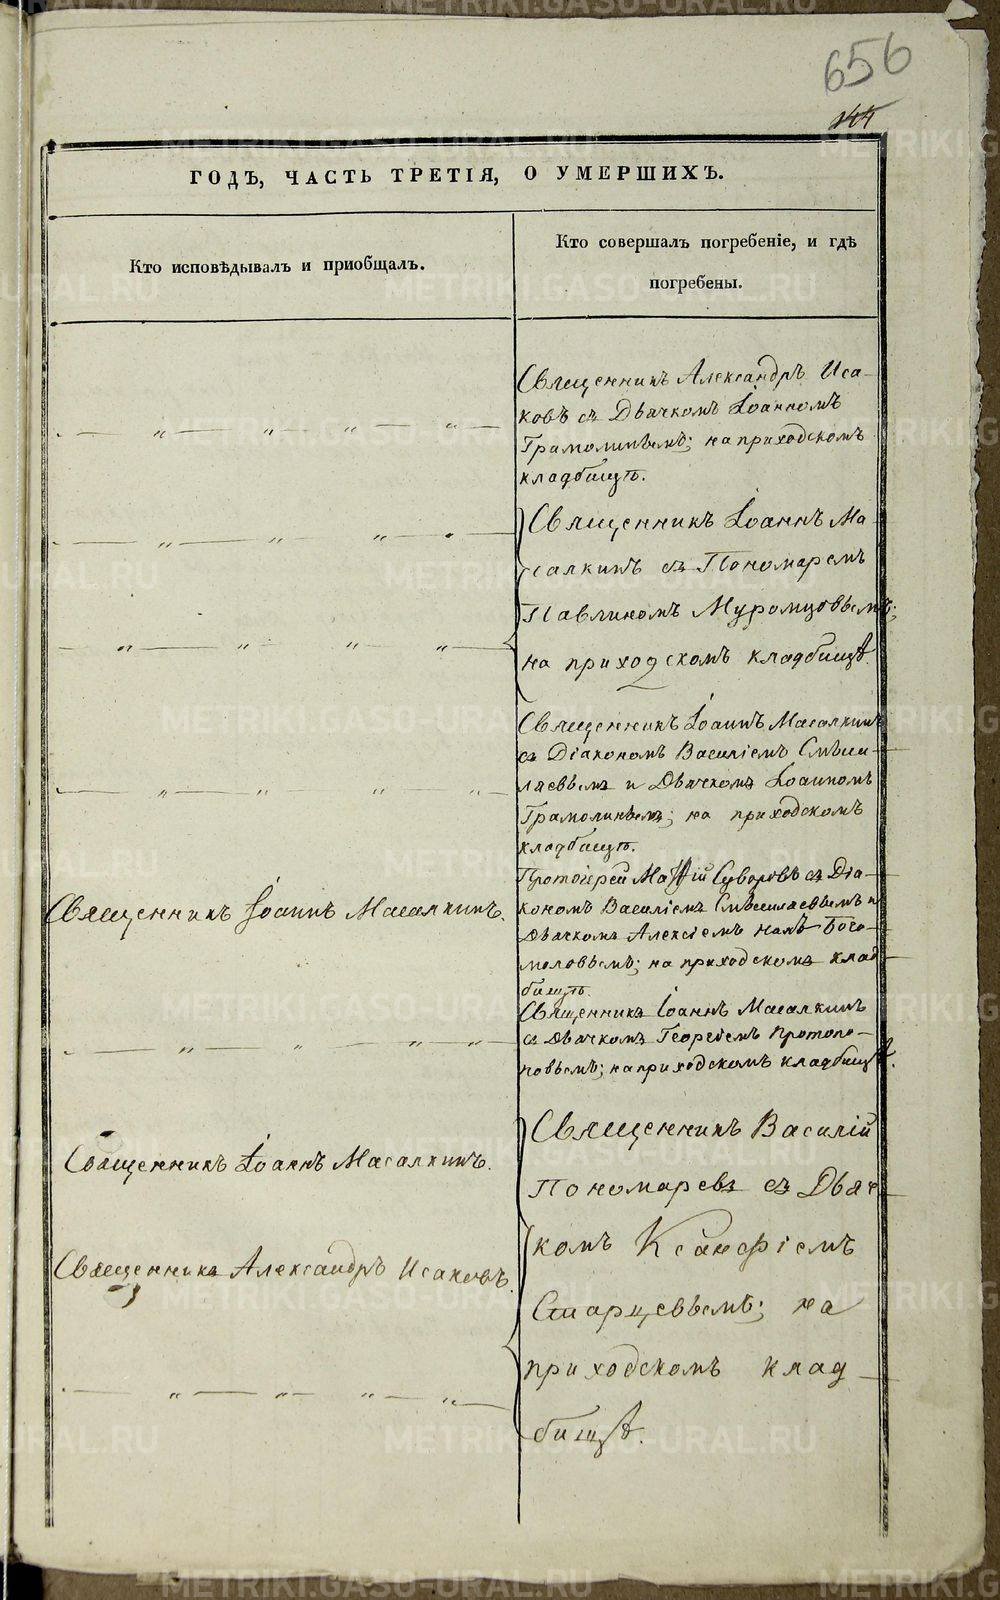 656
144
ГОДЪ, ЧАСТЬ ТРЕТІЯ, О УМЕРШИХЪ.
Кто исповѣдывалъ и пріобщалъ.
Кто совершалъ погребеніе, и гдѣ
погребены.
Священникъ Александръ Иса-
ковъ съ Дьячкомъ Іоанномъ
Грамолинымъ; на приходскомъ
кладбищѣ.
Священникъ Іоаннъ Ма-
салкинъ съ Пономаремъ
Павлиномъ Муромцовымъ;
на приходскомъ кладбищѣ
Священникъ Іоаннъ Масалкинъ
съ Діакономъ Василіемъ Смыш-
ляевымъ и Дьячкомъ Іоанномъ
Грамолинымъ; на приходскомъ
кладбищѣ.
Священникъ Іоаннъ Масалкинъ.
Протоіерей Матѳій Суворовъ съ Діа-
кономъ Василіемъ Смышляевымъ и
Дьячкомъ Алексіемъ Бого-
моловымъ; на приходскомъ клад-
бищѣ.
Священникъ Іоаннъ Масалкинъ
съ Дьячкомъ Георгіемъ Протопо-
повымъ; на приходскомъ кладбищѣ.
Священникъ Іоаннъ Масалкинъ.
Священникъ Александръ Исаковъ.
Священникъ Василій
Пономаревъ съ Дьяч-
комъ Ксанфіемъ
Старцевымъ; на
приходскомъ клад-
бищѣ.
METRIKI.GASO-URAL.RU